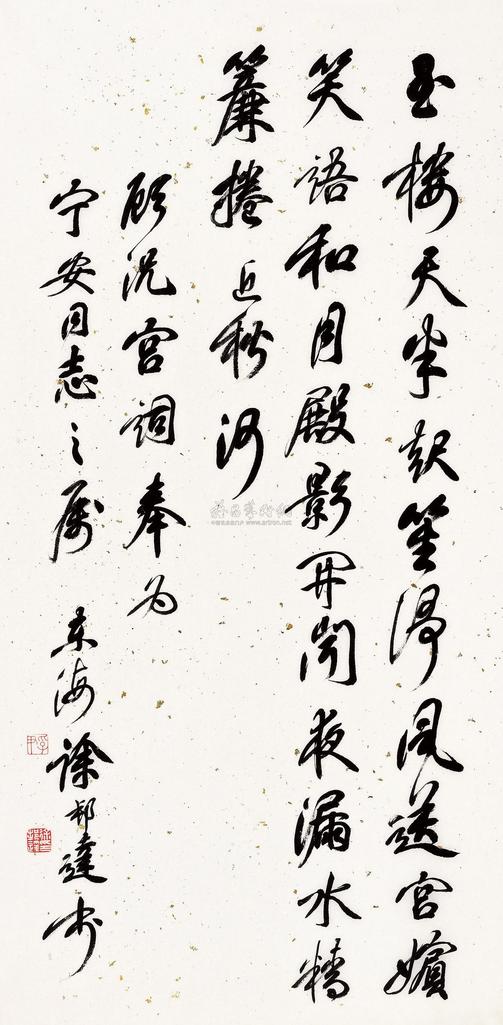 玉樓天半起笙歌风送宫嬪
笑語和月殿影開聞夜漏水精
簾捲近秋河
顾况宫詞奉为
宁安同志之属 东海徐邦達书
雅昌藝術網
www.artron.net